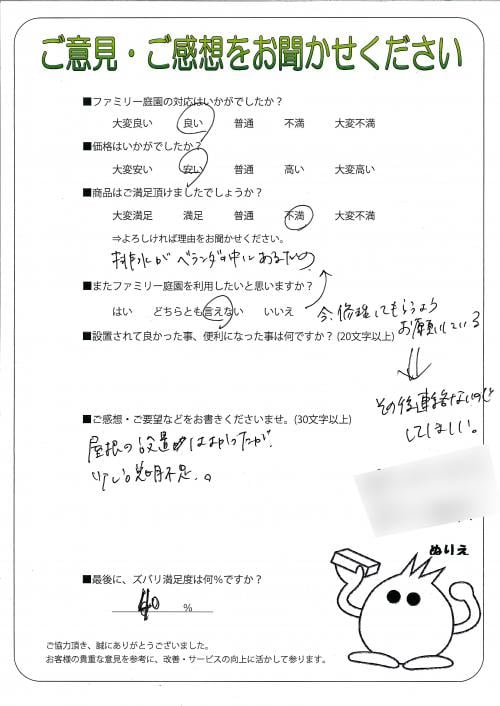 ご意見・ご感想をお聞かせください
■ファミリー庭園の対応はいかがでしたか？
大変良い 良い 普通 不満 大変不満
■価格はいかがでしたか？
大変安い 安い 普通 高い 大変高い
■商品はご満足頂けましたでしょうか？
大変満足 満足 普通 不満 大変不満
⇒よろしければ理由をお聞かせください。
排水がベランダの中にあるための
■またファミリー庭園を利用したいと思いますか？
はい どちらとも言えない いいえ
今、修理してもらうよう
お願いしている
■設置されて良かった事、便利になった事は何ですか？(20文字以上)
その後連絡ないので
してほしい。
■ご感想・ご要望などをお書きくださいませ。(30文字以上)
屋根の設置はよかったが、
説明不足。
ぬりえ
■最後に、ズバリ満足度は何％ですか？
40 ％
ご協力頂き、誠にありがとうございました。
お客様の貴重な意見を参考に、改善・サービスの向上に活かして参ります。